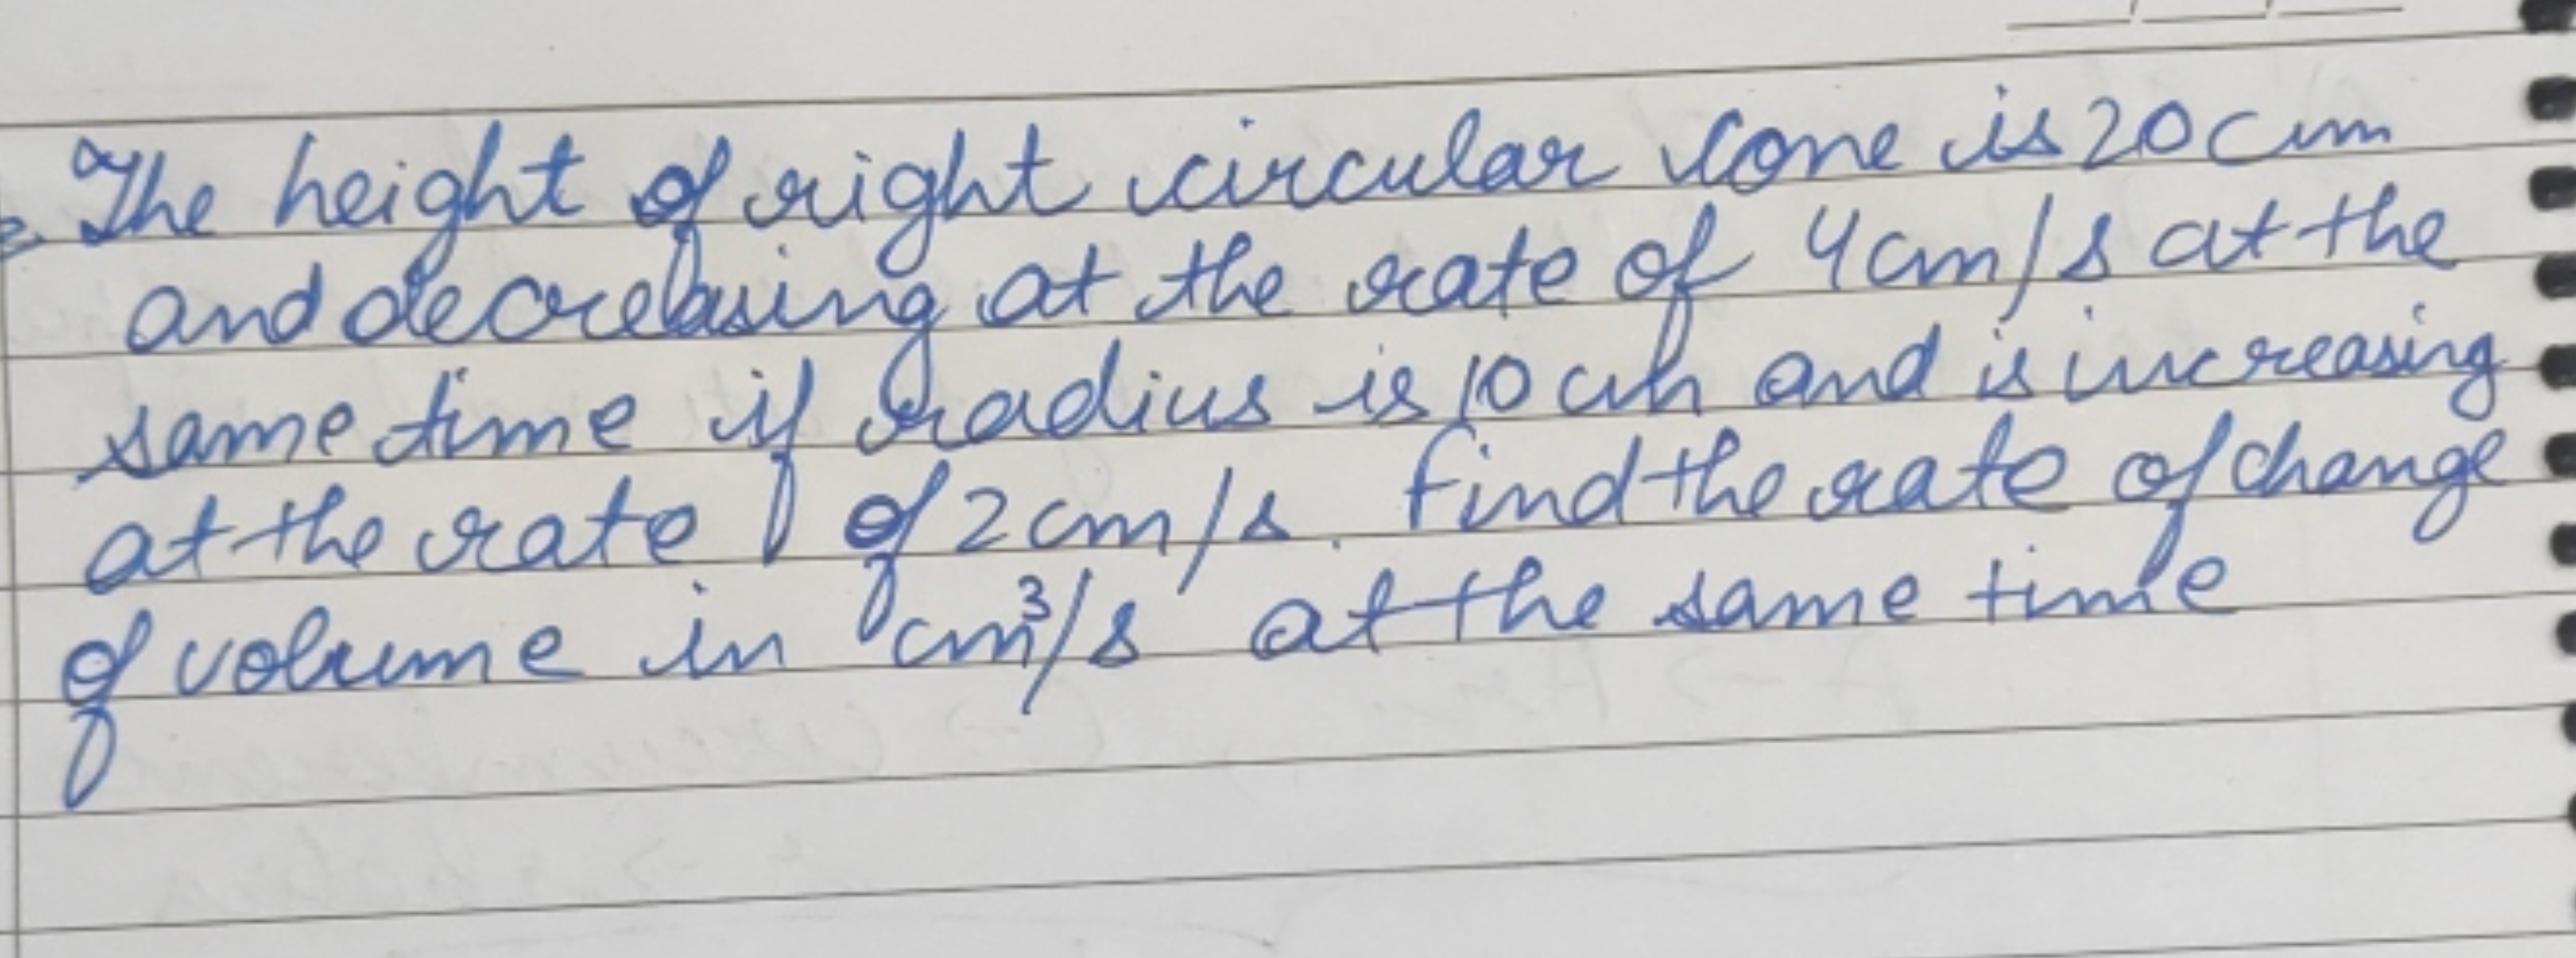 The height of right circular cone is 20 cm
and decreasing at the rate of 4 cm/s at the
same time if radius is 10 cm and is increasing
at the rate of 2 cm/s. find the rate of change
of volume in cm³/s at the same time